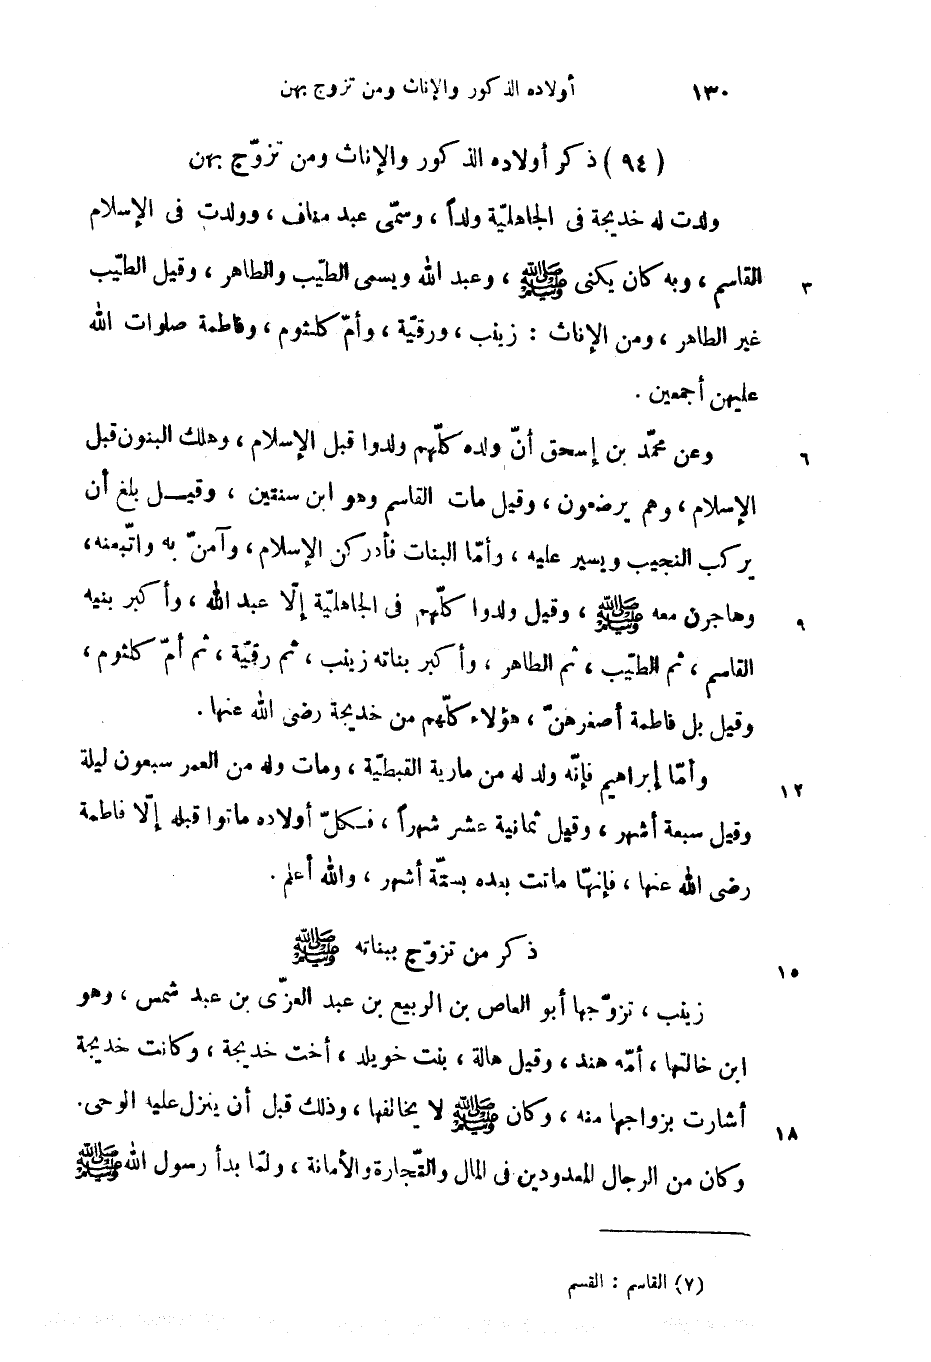 ١٣٠ أولاده الذكور والإناث ومن تزوج بهن
(٩٤) ذكر أولاده الذكور والإناث ومن تزوّج بهن
ولدت له خديجة فى الجاهليّة ولداً ، وسمّى عبد مناف ، وولدت فى الإسلام
٣ القاسم ، وبه كان يكنى ﷺ ، وعبد الله ويسمى الطيّب والطاهر ، وقيل الطيّب
غير الطاهر ، ومن الإناث : زينب ، ورقيّة ، وأمّ كلثوم ، وفاطمة صلوات الله
عليهن أجمعين .
٦ وعن محمّد بن إسحق أنّ ولده كلّهم ولدوا قبل الإسلام ، وهلك البنون قبل
الإسلام ، وهم يرضعون ، وقيل مات القاسم وهو ابن سنتين ، وقيــل بلغ أن
يركب النجيب ويسير عليه ، وأمّا البنات فأدركن الإسلام ، وآمنّ به واتّبعنه ،
٩ وهاجرن معه ﷺ ، وقيل ولدوا كلّهم فى الجاهليّة إلّا عبد الله ، وأكبر بنيه
القاسم ، ثم الطيّب ، ثم الطاهر ، وأكبر بناته زينب ، ثم رقيّة ، ثم أمّ كلثوم ،
وقيل بل فاطمة أصغرهنّ ، هؤلاء كلّهم من خديجة رضى الله عنها .
١٢ وأمّا إبراهيم فإنّه ولد له من مارية القبطيّة ، ومات وله من العمر سبعون ليلة
وقيل سبعة أشهر ، وقيل ثمانية عشر شهراً ، فكلّ أولاده ماتوا قبله إلّا فاطمة
رضى الله عنها ، فإنهّا ماتت بعده بستّة أشهر ، والله أعلم .
١٥ ذكر من تزوّج ببناته ﷺ
زينب ، تزوّجها أبو العاص بن الربيع بن عبد العزّى بن عبد شمس ، وهو
ابن خالتها ، أمّه هند ، وقيل هالة ، بنت خويلد ، أخت خديجة ، وكانت خديجة
١٨ أشارت بزواجها منه ، وكان ﷺ لا يخالفها ، وذلك قبل أن ينزل عليه الوحى .
وكان من الرجال المعدودين فى المال والتّجارة والأمانة ، ولمّا بدأ رسول الله ﷺ
(٧) القاسم : القسم